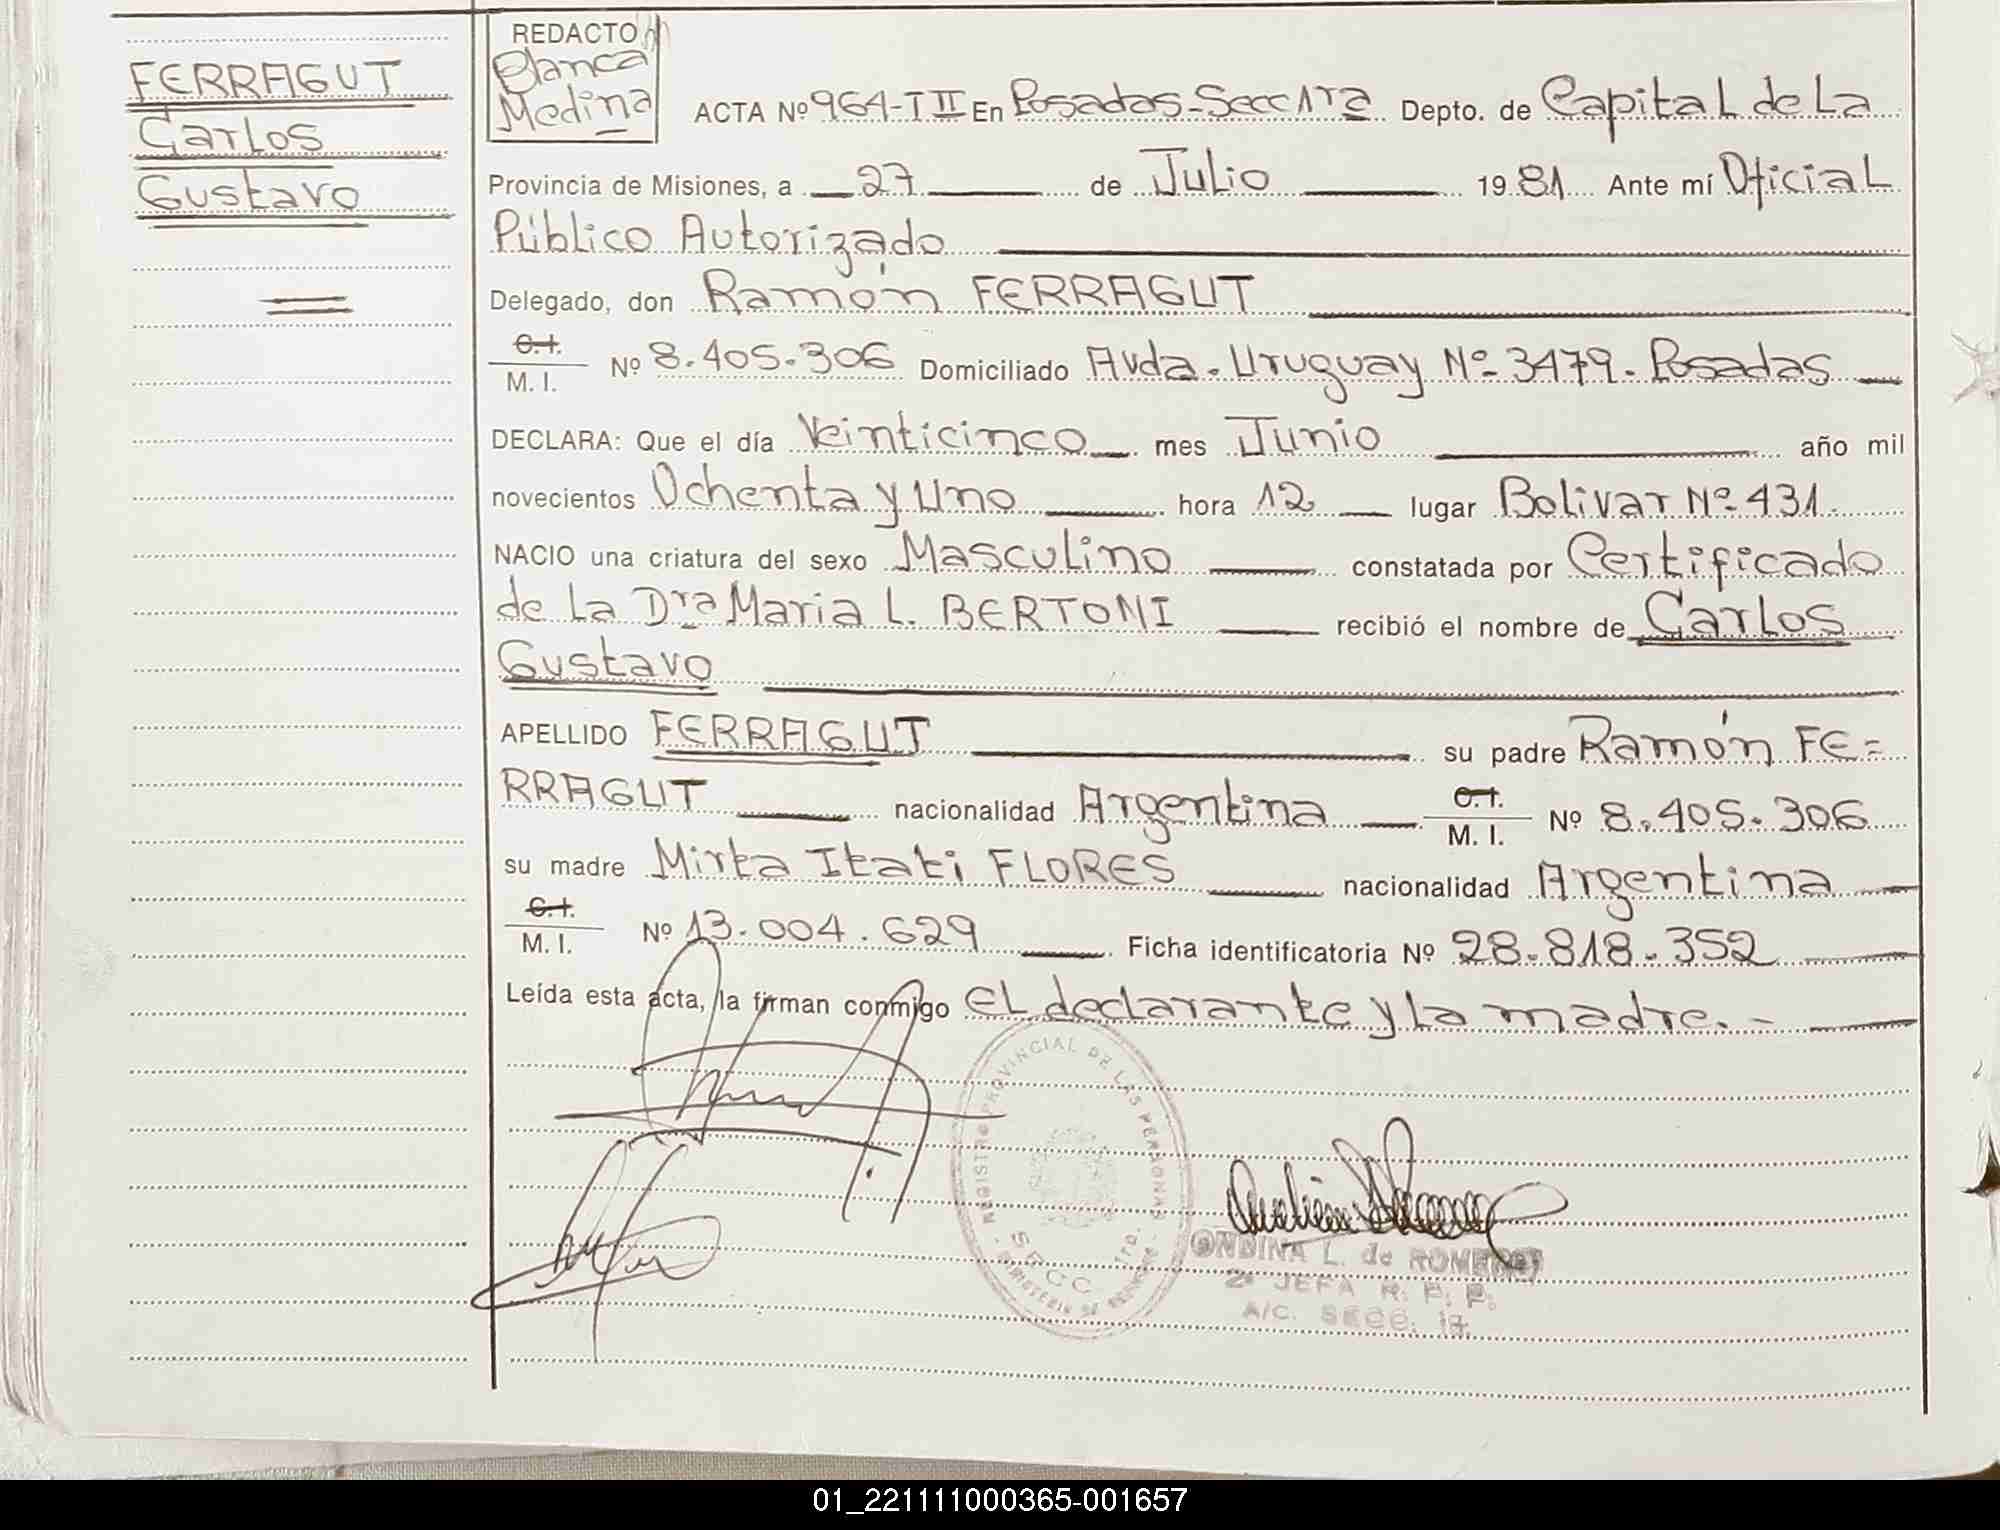 FERRAGUT
Carlos
Gustavo
REDACTO
Blanca
Medina
ACTA Nº 964-TII En Posadas-Secc 1ra Depto. de Capital de La
Provincia de Misiones, a 27 de Julio 1981 Ante mí Oficial
Público Autorizado
Delegado, don Ramón FERRAGUT
C.I.
M. I. Nº 8.405.306 Domiciliado Avda. Uruguay Nº 3479. Posadas
DECLARA: Que el día Veinticinco mes Junio año mil
novecientos Ochenta y Uno hora 12 lugar Bolivar Nº 431.
NACIO una criatura del sexo Masculino constatada por Certificado
de La Dra Maria L. BERTONI recibió el nombre de Carlos
Gustavo
APELLIDO FERRAGUT su padre Ramón FE=
RRAGUT nacionalidad Argentina C.I.
M. I. Nº 8.405.306
su madre Mirta Itati FLORES nacionalidad Argentina
C.I.
M. I. Nº 13.004.629 Ficha identificatoria Nº 28.818.352
Leída esta acta, la firman conmigo EL declarante y la madre.-
REGISTRO PROVINCIAL DE LAS PERSONAS
SECC 1ra.
ONDINA L. de ROMERO
2ª JEFA R. P. P.
A/C. SECC. 1ª
01_221111000365-001657